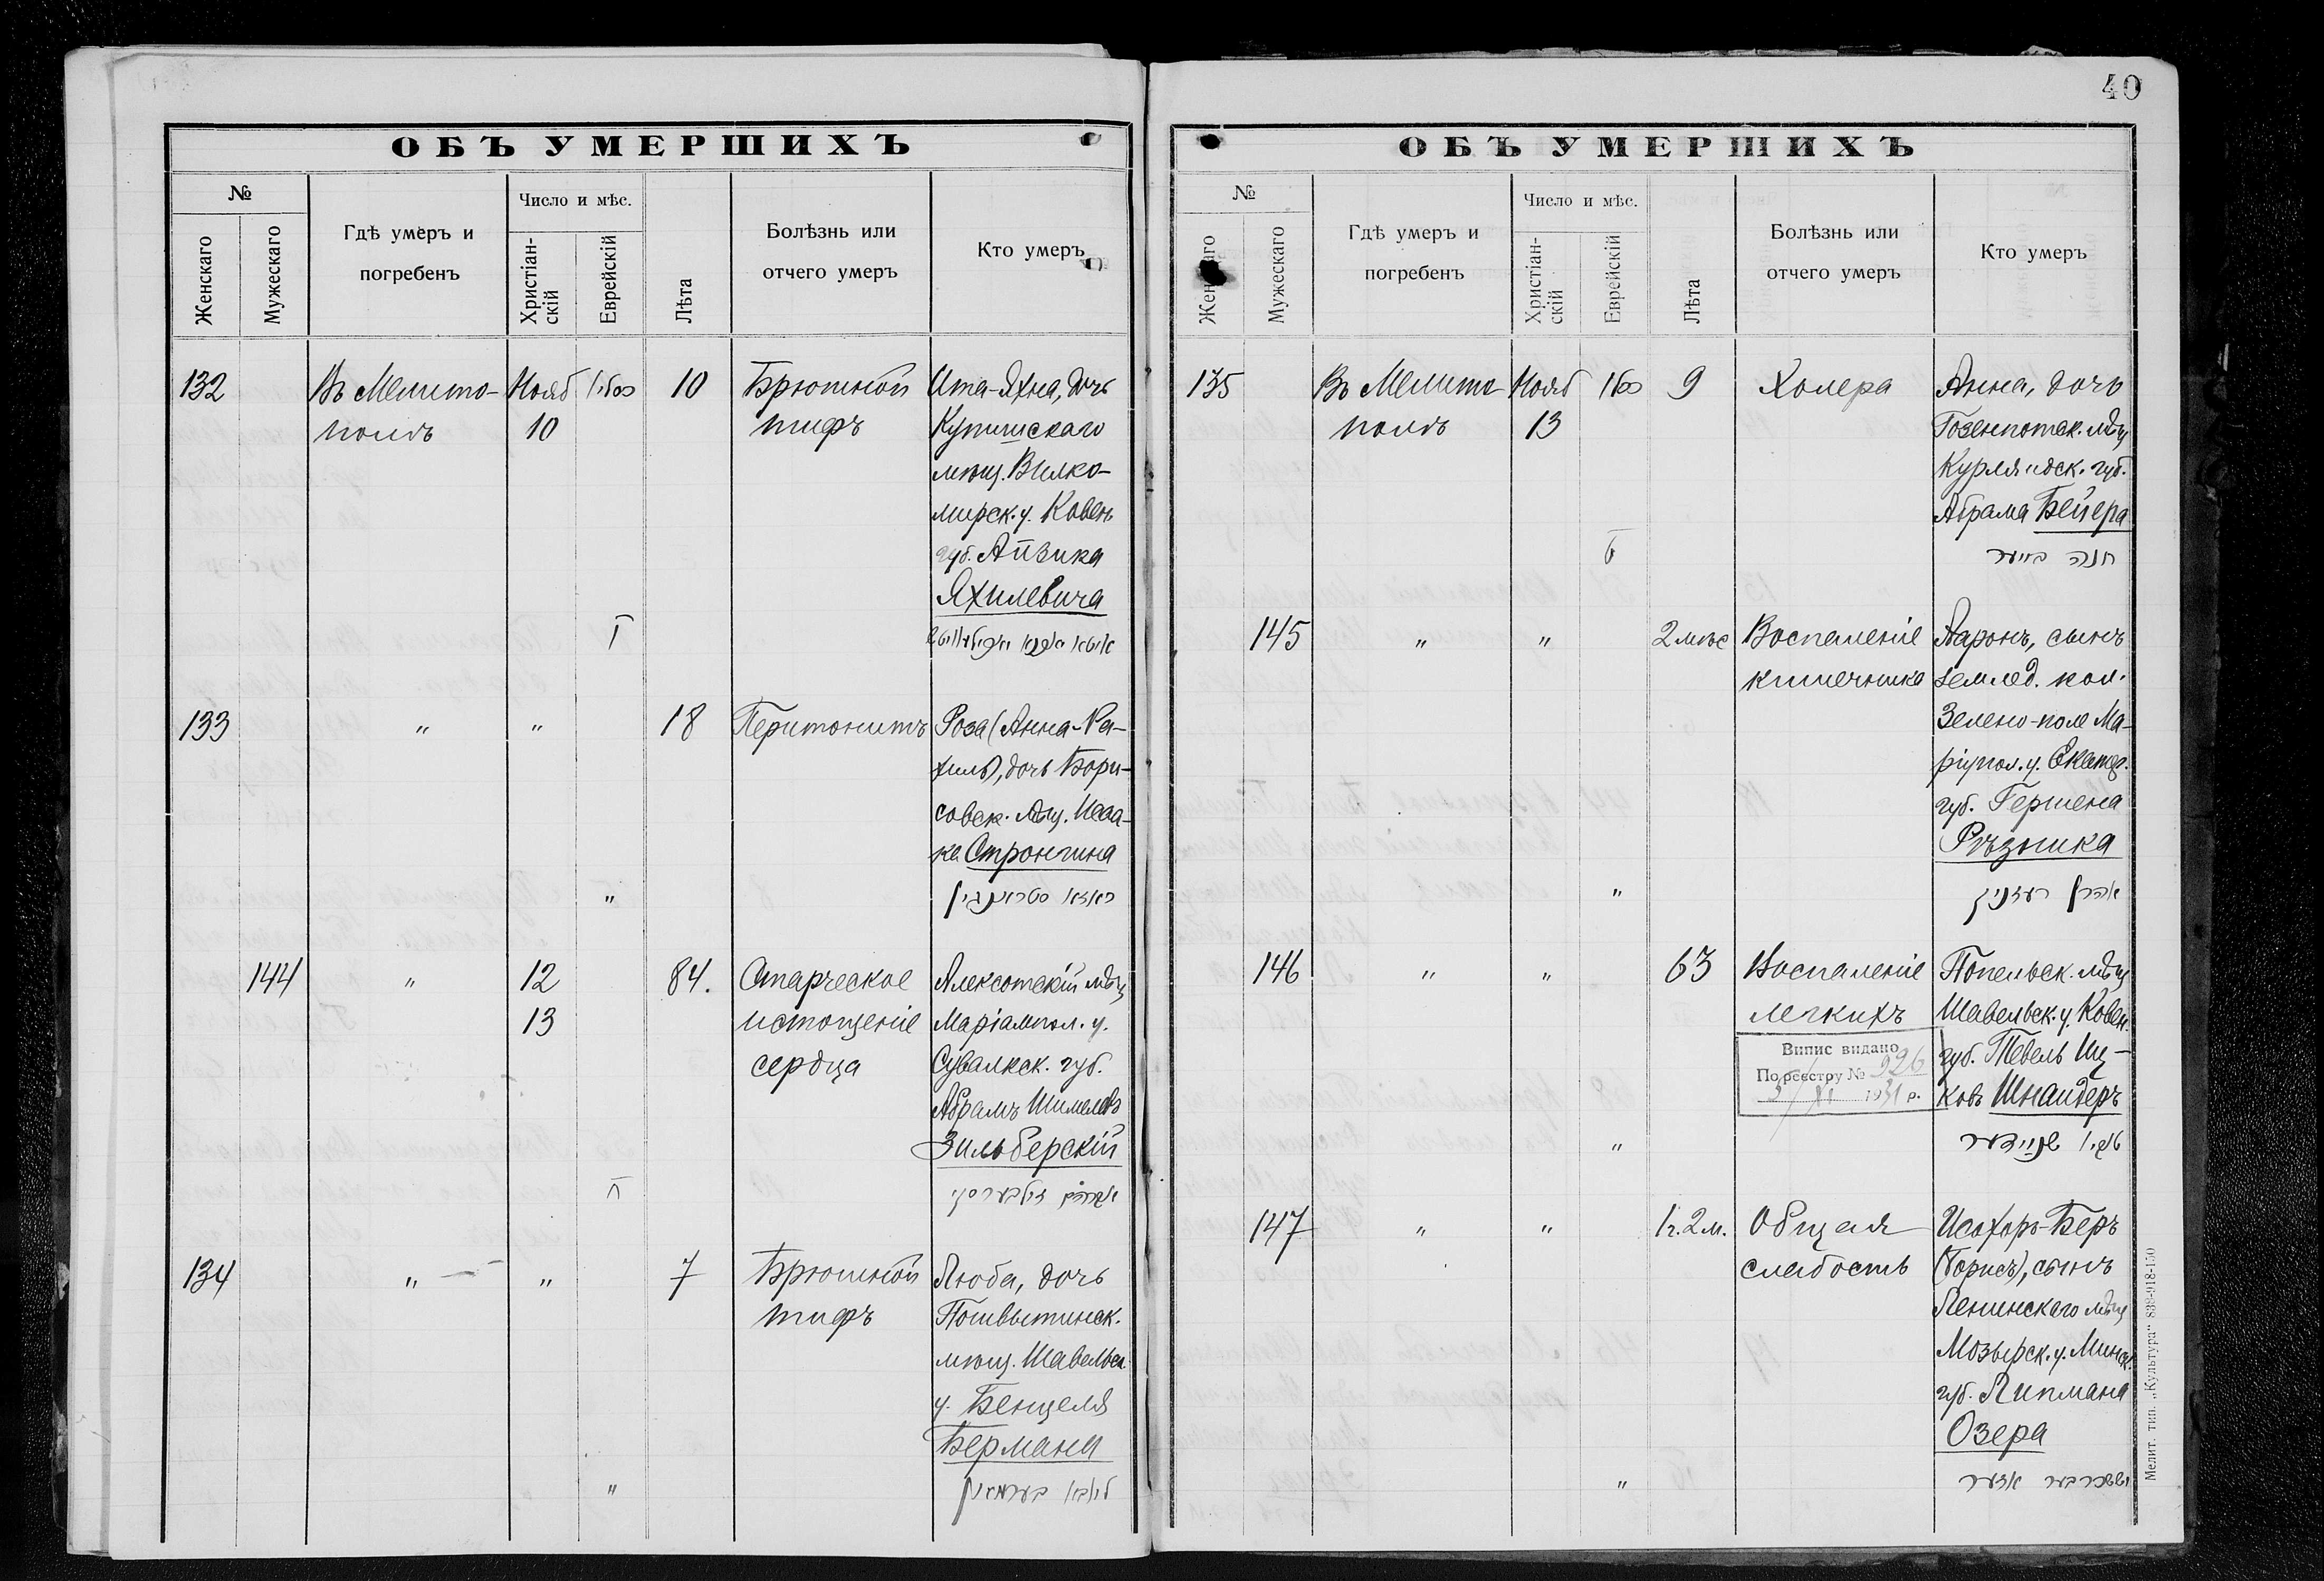 40
ОБЪ УМЕРШИХЪ
№
Женскаго
Мужескаго
Гдѣ умеръ и
погребенъ
Число и мѣс.
Христіан-
скій
Еврейскій
Лѣта
Болѣзнь или
отчего умеръ
Кто умеръ
132
Въ Мелито-
полѣ
Нояб
10
10
Брюшной
тифъ
Ита-Яхна, дочь
Купишскаго
мѣщ. Вилко-
мирск. у. Ковен
губ. Айзика
Яхилевича
133
"
"
18
Перитонитъ
Роза (Анна-Ра-
хиль), дочь Бори-
совск. мѣщ. Исаа-
ка Стронгина
"
ראזא סטראנגין
144
"
12
13
84.
Старческое
истощеніе
сердца
Алексотскій мѣщ
Маріампол. у.
Сувалкск. губ.
Абрамъ Шимелевъ
Зильберскій
ח
אברהם זילבערסקי
134
"
"
7
Брюшной
тифъ
Люба, дочь
Пошвытинск.
мѣщ. Шавельск.
у. Бенцеля
Бермана
"
ליובא בערמאן
ОБЪ УМЕРШИХЪ
№
Женскаго
Мужескаго
Гдѣ умеръ и
погребенъ
Число и мѣс.
Христіан-
скій
Еврейскій
Лѣта
Болѣзнь или
отчего умеръ
Кто умеръ
135
Въ Мелито
полѣ
Нояб
13
9
Холера
Анна, дочь
Газенпотск. мѣщ
Курляндск. губ.
Абрама Бейера
ט
חנה בייער
145
"
"
2 мѣс
Воспаленіе
кишечника
Ааронъ, сынъ
землед. кол.
Зелено-поле Ма-
ріупол. у. Екатер.
губ. Гершена
Рѣзника
"
אהרן רעזניק
146
"
"
63
Воспаленіе
легкихъ
Попельск. мѣщ
Шавельск. у. Ковен.
губ. Тевель Иц-
ковъ Шнайдеръ
"
טעביל שניידער
Випис видано
По реєстру № 926
5/XI 1931 р.
147
"
"
1 г. 2 м.
Общая
слабость
Исохоръ-Беръ
(Борисъ), сынъ
Ленинскаго мѣщ
Мозырск. у. Минск.
губ. Липмана
Озера
"
יששכר בער אזער
Мелит. тип. „Культура“ 838-918-150